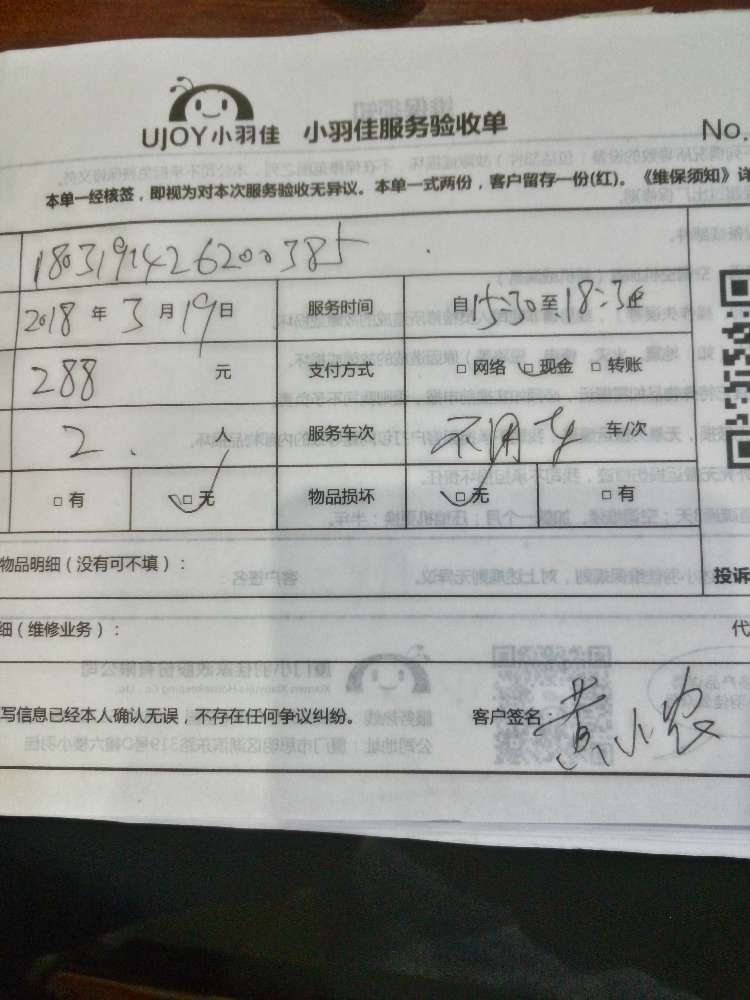 UJOY小羽佳 小羽佳服务验收单
No.
本单一经核签，即视为对本次服务验收无异议。本单一式两份，客户留存一份(红)。《维保须知》详
1803191426200385
2018 年 3 月 19 日 服务时间 自 15:30 至 18:30
288 元 支付方式 □ 网络 □ 现金 □ 转账
2. 人 服务车次 不用车 车/次
□ 有 □ 无 物品损坏 □ 无 □ 有
物品明细（没有可不填）：
投诉
细（维修业务）：
代
写信息已经本人确认无误，不存在任何争议纠纷。 客户签名 黄小农